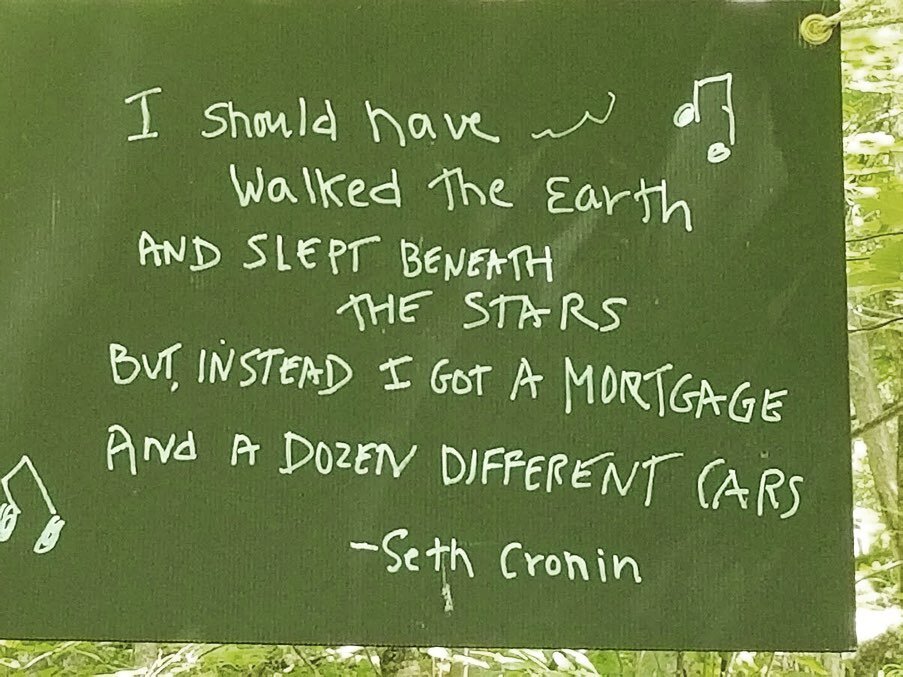 I should have
Walked The Earth
AND SLEPT BENEATH
THE STARS
BUT, INSTEAD I GOT A MORTGAGE
ANd A DOZEN DIFFERENT CARS
-Seth Cronin